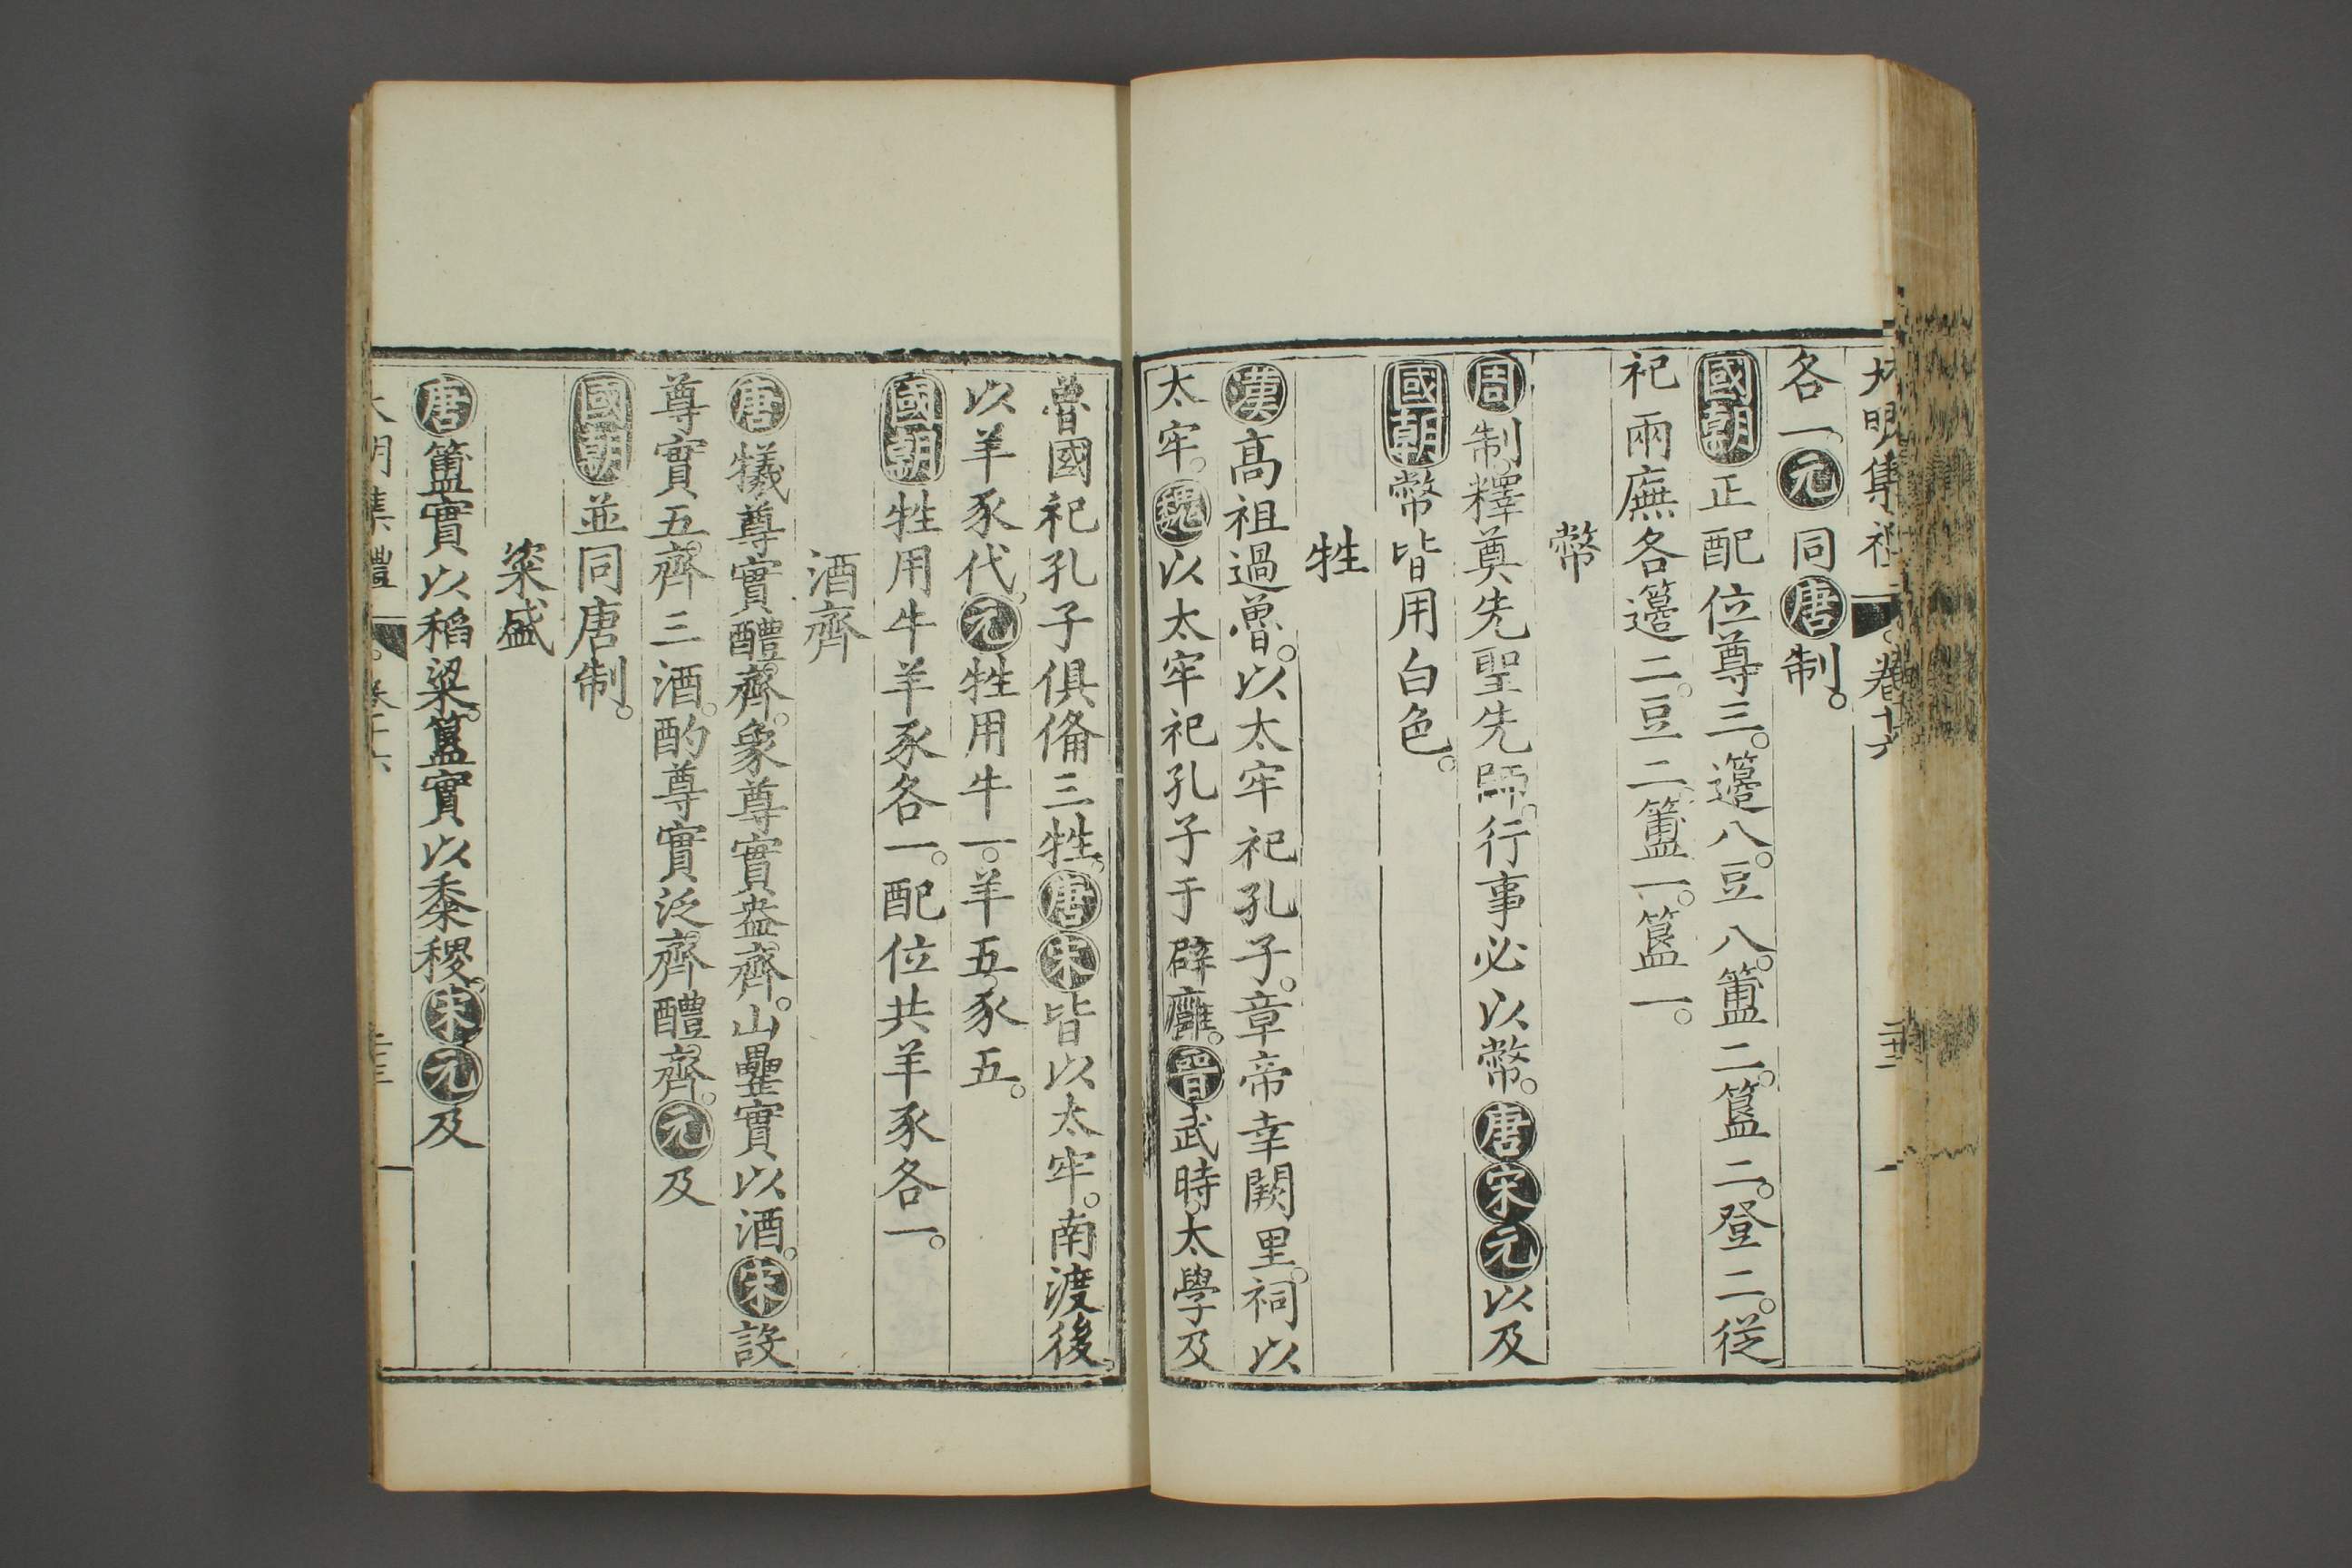 大明集禮 卷十六
各一。元同唐制。
國朝正配位尊三。籩八。豆八。簠二。簋二。登二。從
祀兩廡各籩二。豆二。簠一。簋一。
幣
周制。釋奠先聖先師。行事必以幣。唐宋元以及
國朝幣皆用白色。
牲
漢高祖過魯。以太牢祀孔子。章帝幸闕里。祠以
太牢。魏以太牢祀孔子于辟廱。晉武時。太學及
魯國祀孔子俱俻三牲。唐宋皆以太牢。南渡後。
以羊豕代。元牲用牛一。羊五。豕五。
國朝牲用牛羊豕各一。配位共羊豕各一。
酒齊
唐犧尊實醴齊。象尊實盎齊。山罍實以酒。宋設
尊實五齊三酒。酌尊實泛齊醴齊。元及
國朝並同唐制。
粢盛
唐簠實以稻粱。簋實以黍稷。宋元及
大明集禮 卷十六